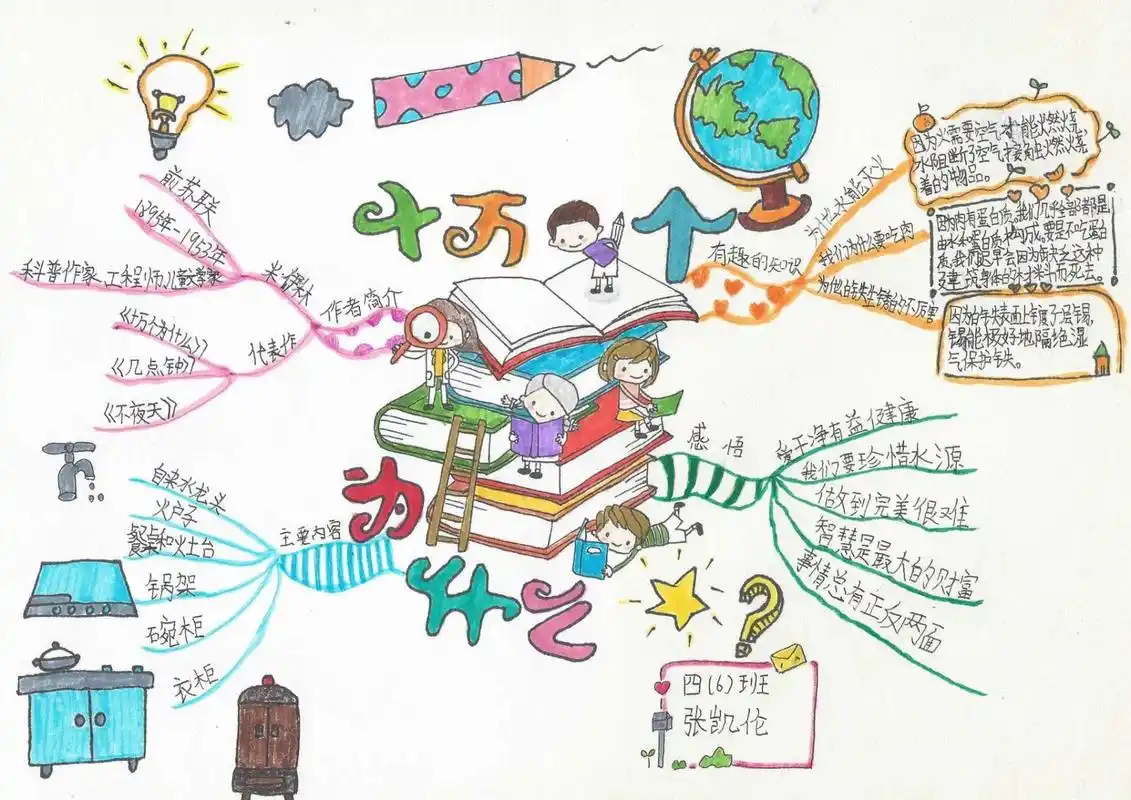 十万个
为
什么
作者简介
米·伊林
前苏联
1895年-1953年
科普作家 工程师 儿童文学家
代表作
《十万个为什么》
《几点钟》
《不夜天》
有趣的知识
为什么水能灭火
因为火需要空气才能燃烧,
水阻断了空气接触燃烧
着的物品。
我们为什么要吃肉
因为肉有蛋白质,我们几乎全部都是
由水和蛋白质构成。要是不吃蛋白
质,我们迟早会因为缺乏这种
建筑身体的材料而死去。
因为铁表面上镀了层锡,
锡能极好地隔绝湿
气保护铁。
主要内容
自来水龙头
火炉子
餐桌和灶台
锅架
碗柜
衣柜
感悟
爱干净有益健康
我们要珍惜水源
做到完美很难
智慧是最大的财富
事情总有正反两面
四(6)班
张凯伦